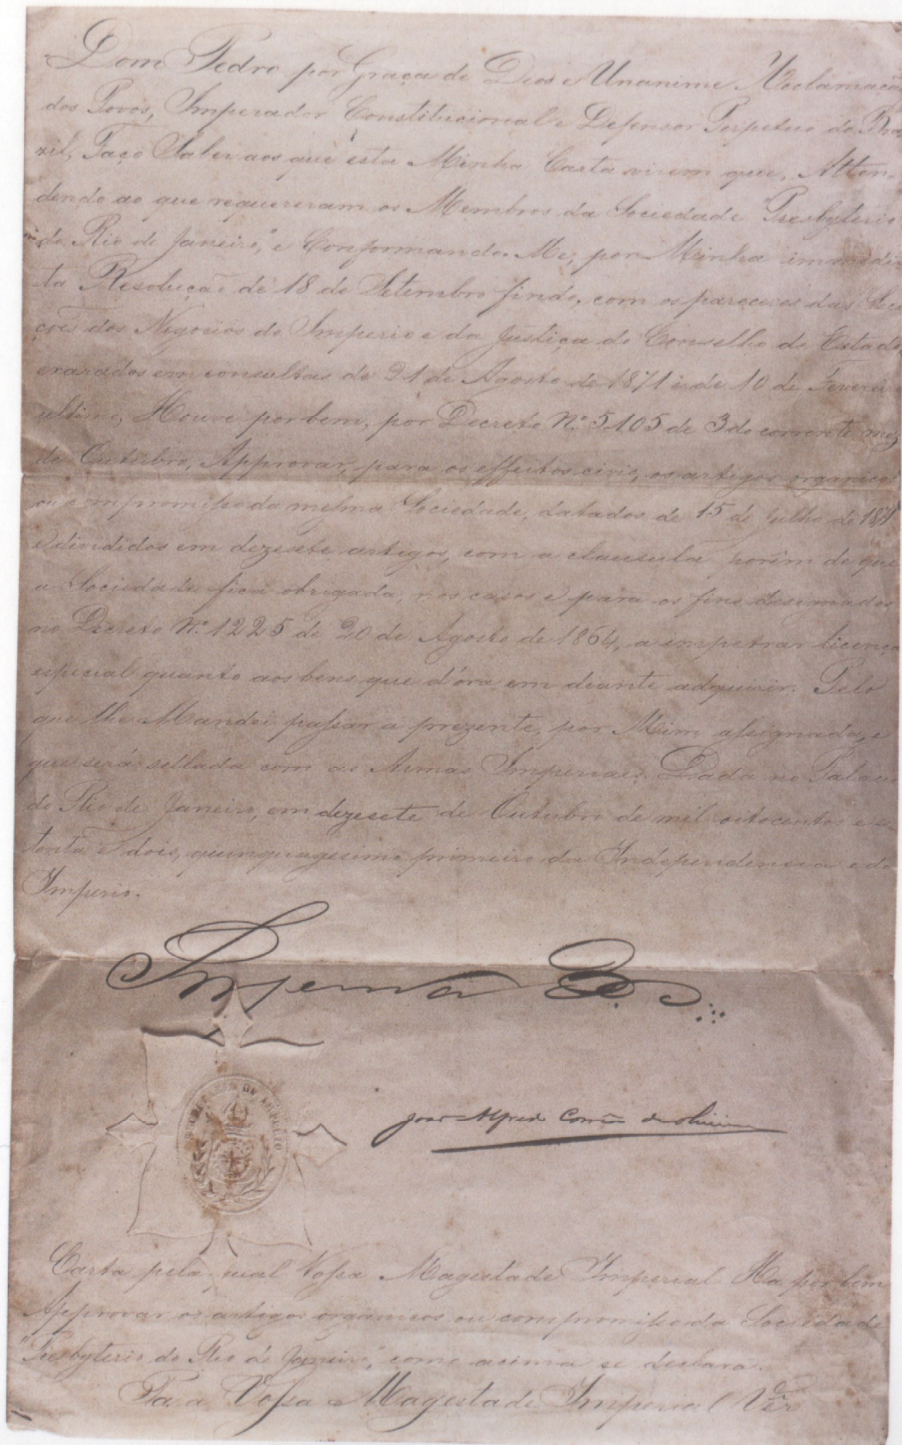 Dom Pedro por Graça de Deos e Unanime Acclamação
dos Povos, Imperador Constitucional e Defensor Perpetuo do Bra
zil, Faço Saber aos que esta Minha Carta virem que, Atten-
dendo ao que requereram os Membros da Sociedade "Presbyterio
do Rio de Janeiro," e Conformando-Me, por Minha immedia
ta Resolução de 18 de Setembro findo, com os pareceres das Sec
ções dos Negocios do Imperio e da Justiça do Conselho de Estado,
exarados em consultas de 21 de Agosto de 1871 e de 10 de Fevereiro
ultimo, Houve por bem, por Decreto Nº 5105 de 3 do corrente mez
de Outubro, Approvar, para os effeitos civis, os artigos organicos
ou compromisso da mesma Sociedade, datados de 15 de Julho de 1871
e divididos em dezesete artigos, com a clausula porém de que
a Sociedade fica obrigada, nos casos e para os fins designados
no Decreto Nº 1225 de 20 de Agosto de 1864, a impetrar licença
especial quanto aos bens que d'ora em deante adquirir. Pelo
que lhe Mandei passar a prezente, por Mim assignada, e
que será sellada com as Armas Imperiaes. Dada no Palacio
do Rio de Janeiro, em dezesete de Outubro de mil oitocentos e se
tenta e dois, quinquagesimo primeiro da Independencia e do
Imperio.
Imperador
João Alfredo Corrêa de Oliveira
Carta pela qual Vossa Magestade Imperial Ha por bem
Approvar os artigos organicos ou compromisso da Sociedade
"Presbyterio do Rio de Janeiro", como acima se declara.
Para Vossa Magestade Imperial Ver